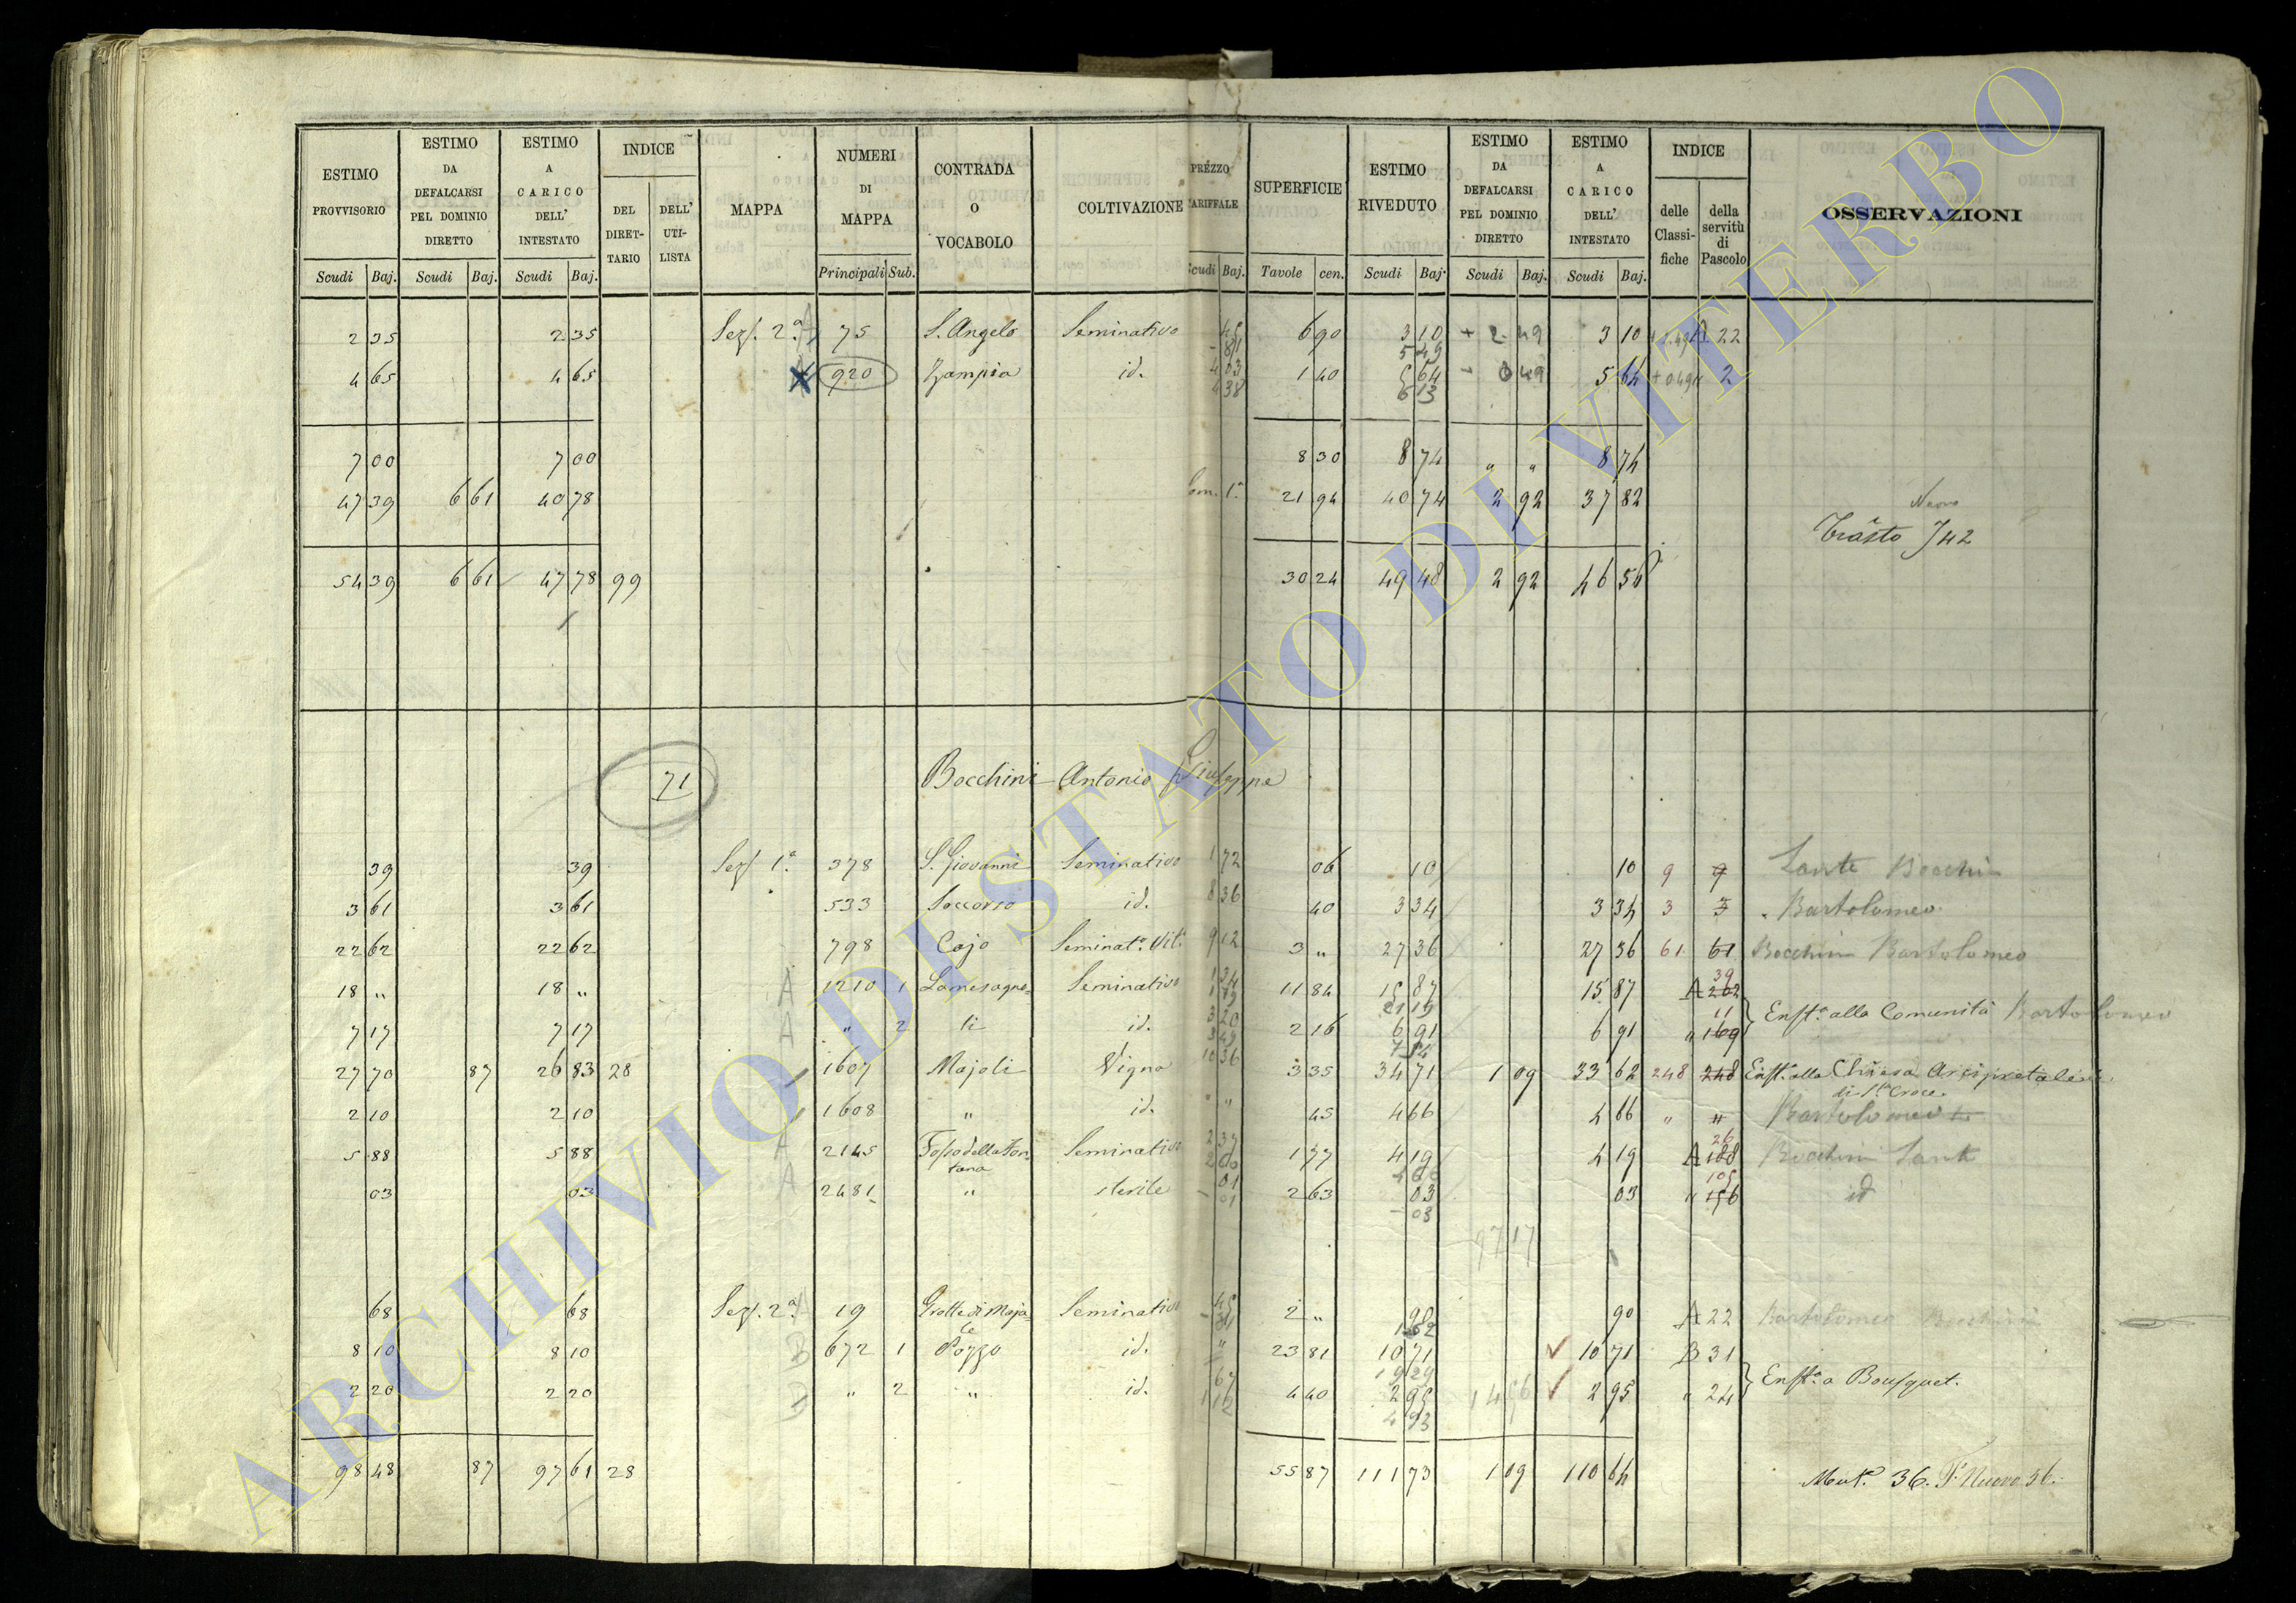 ESTIMO PROVVISORIO | ESTIMO DA DEFALCARSI PEL DOMINIO DIRETTO | ESTIMO A CARICO DELL' INTESTATO | INDICE | MAPPA | NUMERI DI MAPPA | CONTRADA O VOCABOLO | COLTIVAZIONE | PREZZO TARIFFALE | SUPERFICIE | ESTIMO RIVEDUTO | ESTIMO DA DEFALCARSI PEL DOMINIO DIRETTO | ESTIMO A CARICO DELL' INTESTATO | INDICE | OSSERVAZIONI
DEL DIRET-TARIO | DELL' UTI-LISTA | delle Classi-fiche | della servitù di Pascolo
Scudi Baj. | Scudi Baj. | Scudi Baj. | Principali Sub. | Scudi Baj. | Tavole cen. | Scudi Baj | Scudi Baj. | Scudi Baj.
2 35 | 2 35 | Sez. 2ª | 75 | S. Angelo | Seminativo | 45 | 6 90 | 3 10 | + 2 49 | 3 10 | A 22
81 | 5 49
4 65 | 4 65 | 920 | Zampia | id. | 4 03 | 1 40 | 5 64 | - 0 49 | 5 64 | + 0 49 | 2
4 38 | 6 13
7 00 | 7 00 | 8 30 | 8 74 | " " | 8 74
47 39 | 6 61 | 40 78 | 1ª | 21 94 | 40 74 | 2 92 | 37 82
Nuovo
Trasto 742
54 39 | 6 61 | 47 78 | 99 | 30 24 | 49 48 | 2 92 | 46 56
71 | Bocchini Antonio Giuseppe
39 | 39 | Sez. 1ª | 378 | S. Giovanni | Seminativo | 1 72 | 06 | 10 | 10 | 9 | 9 | Sante Bocchini
3 61 | 3 61 | 533 | Soccorso | id. | 8 36 | 40 | 3 34 | 3 34 | 3 | 3 | Bartolomeo
22 62 | 22 62 | 798 | Cajo | Seminatº. Vitº | 9 12 | 3 " | 27 36 | 27 36 | 61 | 61 | Bocchini Bartolomeo
18 " | 18 " | A | 1210 | 1 | Lamesagne | Seminativo | 1 34 | 11 84 | 15 87 | 15 87 | A 202 | 39
1 79 | 21 19
7 17 | 7 17 | A | " | 2 | li | id. | 3 20 | 2 16 | 6 91 | 6 91 | " 169 | 11 | Enftº. alla Comunità Bartolomeo
3 49 | 7 54
27 70 | 87 | 26 83 | 28 | 1607 | Majoli | Vigna | 10 36 | 3 35 | 34 71 | 1 09 | 33 62 | 248 | 248 | Enftº. alla Chiesa Arcipretale
di S. Croce
2 10 | 2 10 | 1608 | " | id. | " " | 45 | 4 66 | 4 66 | " | " | Bartolomeo
5 88 | 5 88 | A | 2145 | Fosso della Fontana | Seminativo | 2 37 | 1 77 | 4 19 | 4 19 | A 188 | 26 | Bocchini Sante
03 | 03 | A | 2481 | " | sterile | 01 | 2 63 | 03 | 03 | " 156 | 105 | id
01 | 08
97 17
68 | 68 | Sez. 2ª | 19 | Grotte di Majale | Seminativo | 45 | 2 " | 90 | 90 | A 22 | Bartolomeo Bocchini
81 | 1 62
8 10 | 8 10 | B | 672 | 1 | Pozzo | id. | " | 23 81 | 10 71 | 10 71 | B 31
19 29
2 20 | 2 20 | B | " | 2 | " | id. | 67 | 4 40 | 2 95 | 14 56 | 2 95 | " 24 | Enftº. a Bousquet.
1 12 | 4 93
98 48 | 87 | 97 61 | 28 | 55 87 | 111 73 | 1 09 | 110 64 | 36. Tº Nuovo 36.
ARCHIVIO DI STATO DI VITERBO